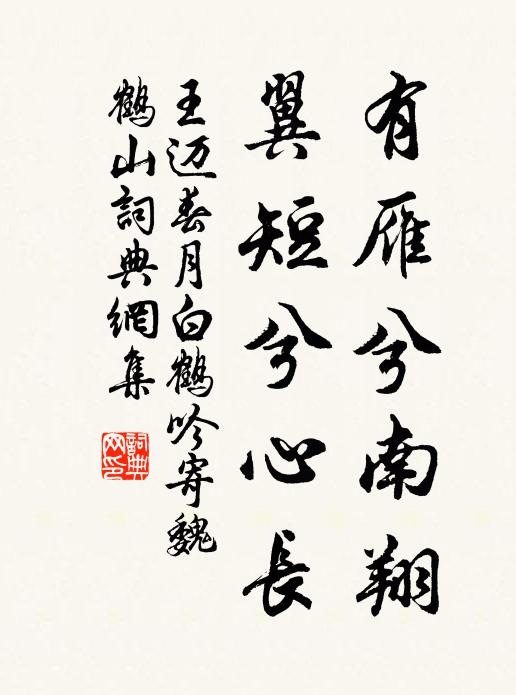 有雁兮南翔
翼短兮心長
王迈春月白鶴吟寄魏
鶴山詞典網集
詞典網印